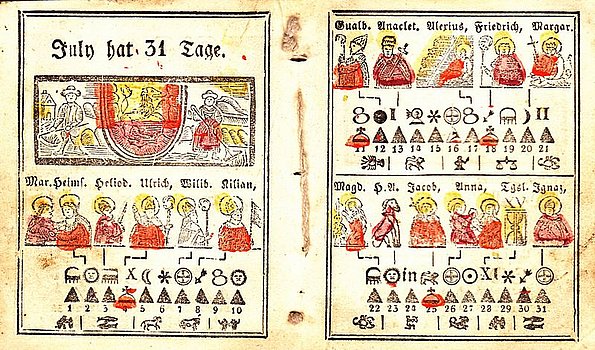 July hat 31 Tage.
Mar.Heims. Heliod. Ulrich, Willb. Kilian,
X
1 2 3 5 6 7 8 9 10
Gualb. Anaclet. Alexius, Friedrich, Margar.
8 I 8 II
11 12 13 14 15 16 17 18 19 20 21
Magd. H.A. Jacob, Anna, Tgsl. Ignaz,
XV
in XI
22 23 24 25 26 27 28 29 30 31.